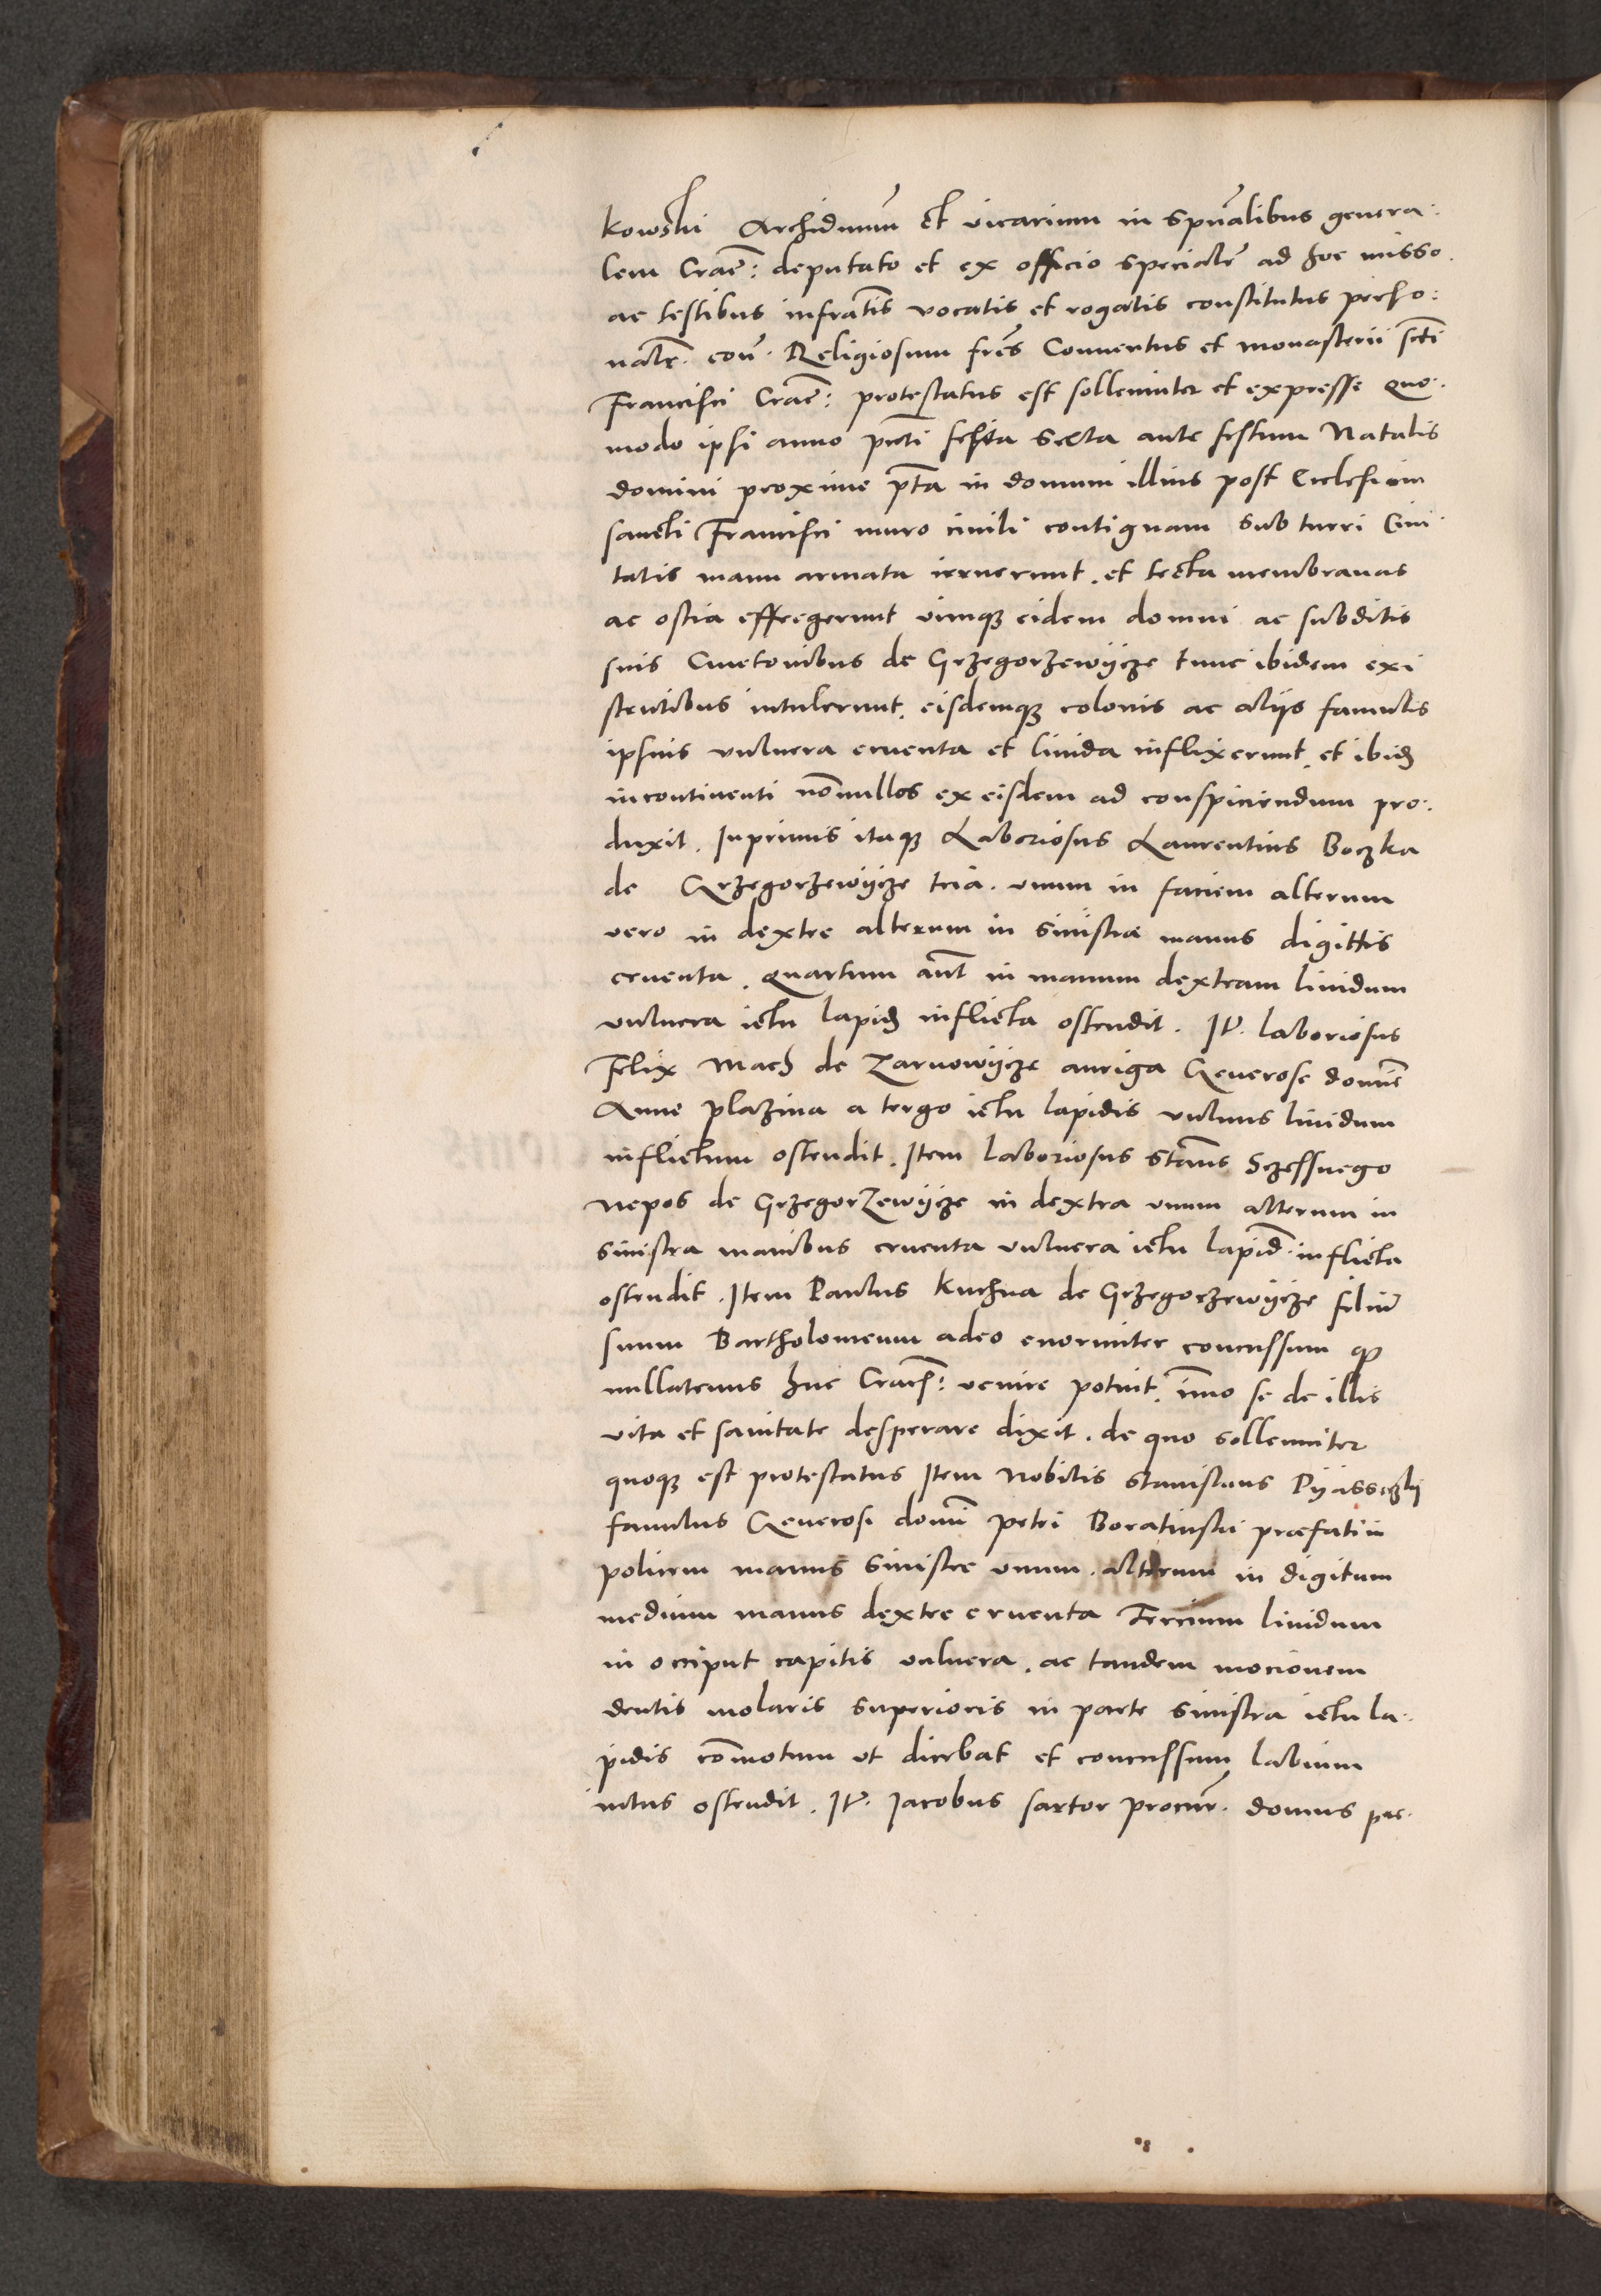 kowski Archidnum̃ et vicarium in spũalibus genera:
lem Crac̃: deputato et ex officio specialr̃ ad hoc misso.
ac testibus infrãtis vocatis et rogatis constitutus perso:
nalr̃. con̄. Religiosum fr̃es Conuentus et monasterii scti
Francisci Crac̃: protestatus est sollenniter et expresse quo:
modo ipsi anno pñti feria sexta ante festum Natalis
domini proxime pñta in domum illius post Ecclesiam
sancti Francisci muro ciuili contiguam sub turri Ciui
tatis manu armata irruerunt. et tecta membranas
ac ostia effregerunt vimqꝫ eidem domui ac subditis
suis Cmetonibus de Grzegorzewijcze tunc ibidem exi
stentibus intulerunt. eisdemqꝫ colonis ac alijs famulis
ipsius vulnera cruenta et liuida inflixerunt. et ibidꝫ
incontinenti nõnullos ex eisdem ad conspiciendum pro:
duxit. Inprimis itaqꝫ Laboriosus Laurentius Boczka
de Grzegorzewijcze tria. vnum in faciem alterum
vero in dextre alterum in sinistra manus digittis
cruenta. quartum aũt in manum dextram liuidum
vulnera ictu lapidꝫ inflicta ostendit. It̃. laboriosus
Felix Mach de Zarnowijcze auriga Generose domñe
Anne plazina a tergo ictu lapidis vulnus liuidum
inflictum ostendit. Item laboriosus Stãns Sczessnego
nepos de Grzegorzewijcze in dextra vnum alterum in
sinistra manibus cruenta vulnera ictu lapid̃. inflicta
ostendit. Item Paulus Kuchna de Grzegorzewijcze filiũ
suum Bartholomeum adeo enormiter concussum qꝫ
nullatenus huc Crac̃: venire potuit. imõ se de illis
vita et sanitate desperare dixit. de quo sollenniter
quoqꝫ est protestatus Item Nobilis Stanislaus Pijassczkij
famulus Generosi domĩ petri Boratinski præfati in
policem manus sinistre vnum. alterum in digitum
medium manus dextre cruenta Tercium liuidum
in occiput capitis vulnera. ac tandem mocionem
dentis molaris superioris in parte sinistra ictu la:
pidis cõmotum vt dicebat et concussum labium
intus ostendit. It̃. Jacobus sartor procur̃. domus prę: